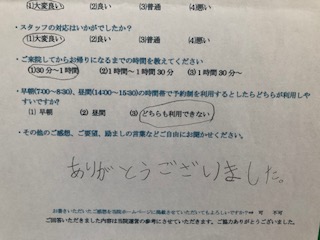 (1)大変良い (2)良い (3)普通 (4)悪い
・スタッフの対応はいかがでしたか？
(1)大変良い (2)良い (3)普通 (4)悪い
・ご来院してからお帰りになるまでの時間を教えてください
(1)30分～1時間 (2)1時間～1時間30分 (3)1時間30分～
・早朝(7:00～8:30)、昼間(14:00～15:30)の時間帯で予約制を利用するとしたらどちらが利用しや
すいですか?
(1) 早朝 (2) 昼間 (3) どちらも利用できない
・その他のご感想、ご要望、励ましの言葉などご自由にお聞かせください。
ありがとうございました。
お書きいただいたご感想を当院ホームページに掲載させていただいてもよろしいですか？ 可 不可
ご回答いただきました内容は当院運営の参考にさせていただきます。ご協力ありがとうございました。